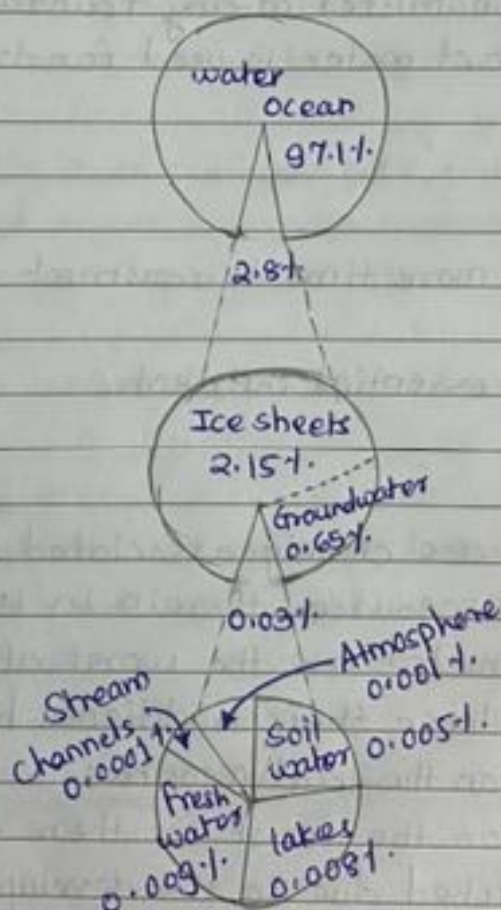 water
ocean
97.1%
2.8%
Ice sheets
2.15%.
Groundwater
0.65%
0.03%
Atmosphere
0.001%.
Stream
Channels
0.0001%
Soil
water 0.005%.
fresh
water
0.009%.
lakes
0.008%.